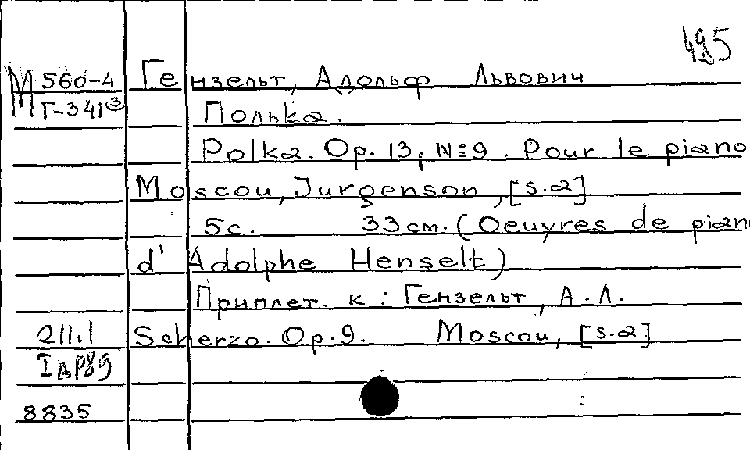 485
М 560-4 Гензельт, Адольф Львович
Г-341 Полька.
Polka. Op. 13, №9. Pour le piano
Moscou, Jurgenson, [s.a]
5с. 33 см. (Oeuvres de piano
d' Adolphe Henselt)
Приплет. к: Гензельт, А.Л.
211.1 Scherzo. Op. 9. Moscou, [s.a]
8835